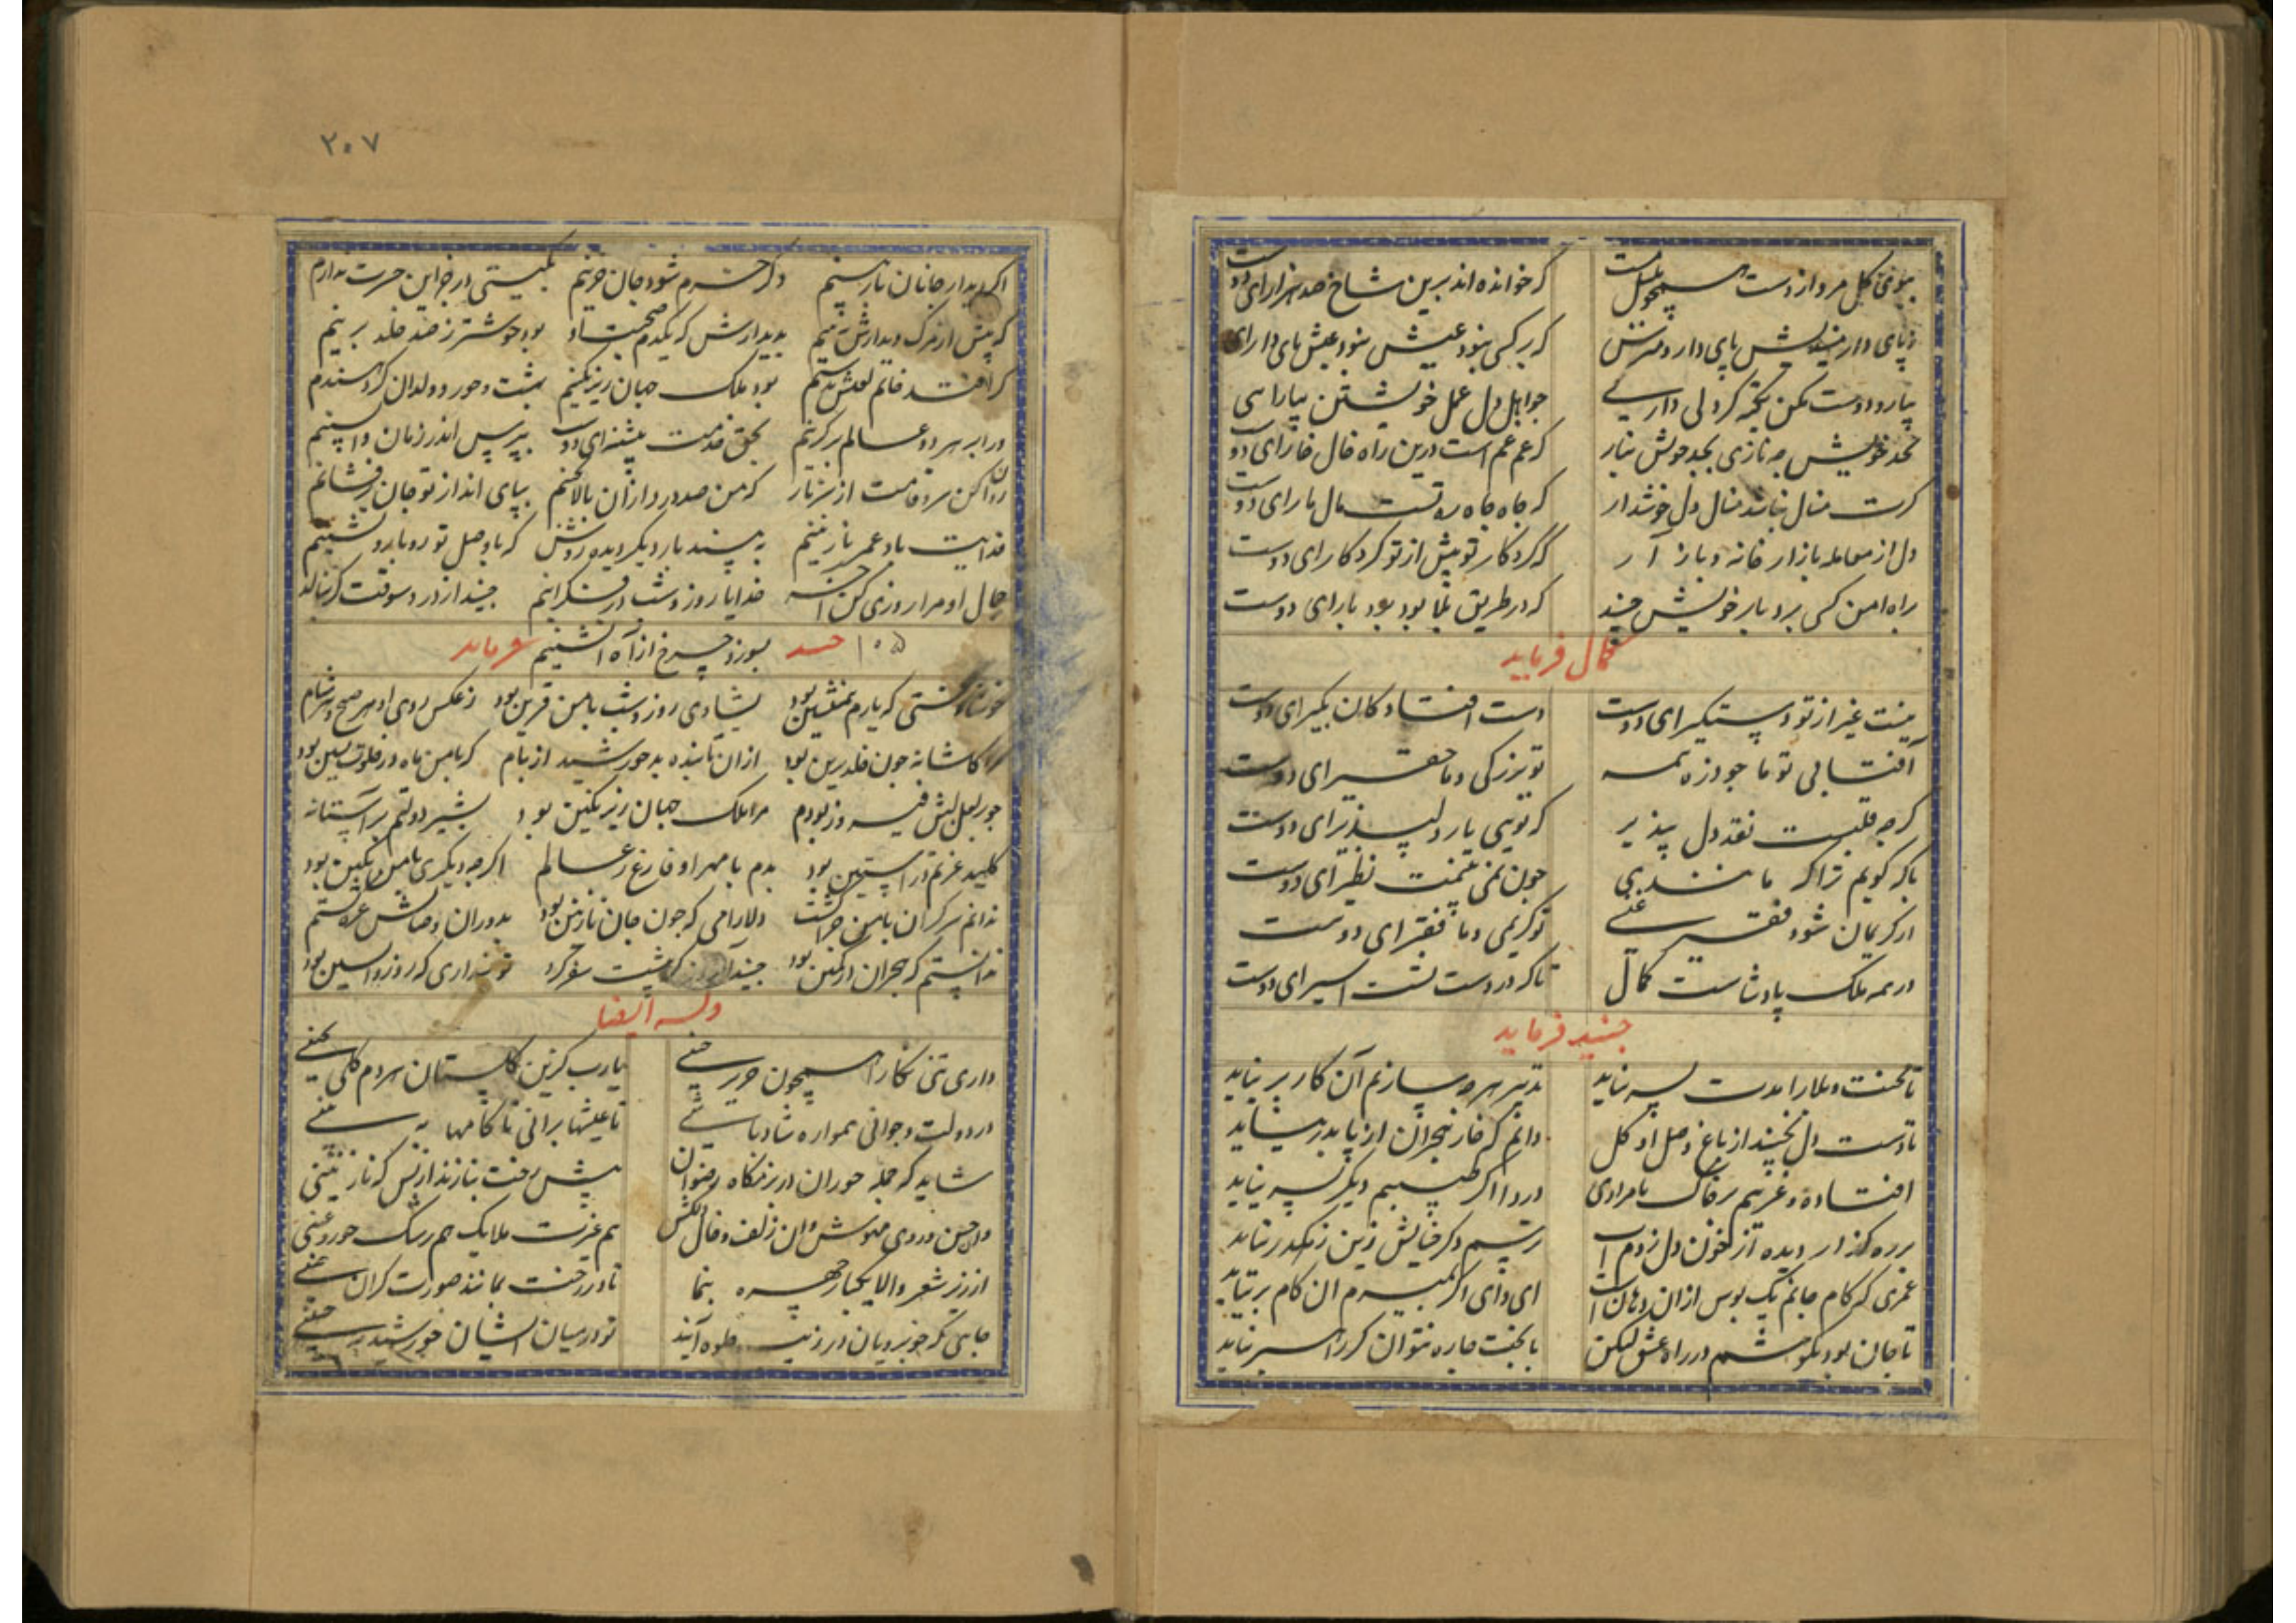 ببوی گل مرو از دست همچو بلبل مست
که خوانده اند برین شاخ صد هزار ای دوست
ز پای دار میندیش پای دار و مترس
که هر کسی نبود عیش نبود عیش پای دار ای
بیار و دوست مکن تکیه گر دلی داری
چو اهل دل عمل خویشتن بیار ای
بخد خویش چه نازی بجد خویش بناز
که عم غم است درین راه و خال خار ای دوست
گرت منال نباشد منال و دل خوش دار
که جاه چاه رهست مال مار ای دوست
دل از معامله بازار خانه و باز آر
که کردکار تو پیش از تو کرد کار ای دوست
براه امن کسی برد بار خویش جنید
که در طریق بلا بود بردبار ای دوست
کمال فرماید
نیست غیر از تو دستگیر ای دوست
دست افتادگان بگیر ای دوست
آفتابی تو ما چو ذره همه
تو بزرگی و ما حقیر ای دوست
گرچه قلبست نقد دل بپذیر
که تویی یار دلپذیر ای دوست
با که گویم ترا که مانندی
چون نمی بینمت نظیر ای دوست
از کریمان شود فقیر غنی
تو کریمی و ما فقیر ای دوست
در همه ملک پادشاست کمال
تا که در دست تست اسیر ای دوست
جنید فرماید
تا محنت و بلا را مدت بسر نیاید
تدبیر هر چه سازم آن کار بر نیاید
تا دست دل نچیند از باغ وصل او گل
دانم که خار هجران از پا بدر نیاید
افتاده و غریبم بر خاک نامرادی
دردا اگر طبیبم دیگر بسر نیاید
بر ره گذار دیده از خون دل زدم آب
رسم دگر خیالش زین رهگذر نیاید
عمری که کام جانم یک بوس از آن دهان است
ای وای اگر بمیرم آن کام بر نیاید
تا جان بود بکوشم در راه عشق لیکن
با بخت چاره نتوان کر راه سر نیاید
۲۰۷
اگر دیدار جانان باز بینم
دگر خرم شود جان حزینم
بگیتی در جز این حسرت ندارم
که پیش از مرگ دیدارش ببینم
بدیدارش که یکدم صحبت او
بود خوشتر ز صد خلد برینم
گر افتد خاتم لعلش بدستم
بود ملک جهان زیر نگینم
بهشت و حور و ولدان گر دهندم
ور ابر هر دو عالم برگزینم
بحق قدمت پیشنه ای دوست
بپرس اندر زمان واپسینم
روان کن سرو قامت از سر ناز
که من صد درد از آن بالا بچینم
بپای انداز تو جان بر فشانم
فدایت باد عمر نازنینم
به بیند بار دیگر دیده روشن
که با وصل تو رو بارو نشینم
جمال او مرا روزی کن آخر
خدایا روز و شب در فکر اینم
جنید از درد سوقت گر بنالد
۱۰۵ جنید بسوزد چرخ از آه آتشینم فرماید
خوشا وقتی که یارم همنشین بود
بشادی روز و شب با من قرین بود
ز عکس روی او هر صبح و هر شام
مرا کاشانه چون خلد برین بود
از آن تابنده بد خورشید از بام
که با من ماه در خلوت نشین بود
چو بر لعل لبش فیروز بودم
مرا ملک جهان زیر نگین بود
بشیر دولتم بر آستانه
کلید عزتم در آستین بود
بدم با مهر او فارغ ز عالم
اگر چه دیگری با من بکین بود
ندانم سرگران با من چرا گشت
دلارامی که چون جان نازنین بود
بدوران وصالش غره گشتم
ندانستم که هجران در کمین بود
جنید آن روز کز پیشت سفر کرد
تو پنداری که روز واپسین بود
وله ایضا
داری تنی نگارا همچون حریر چینی
یارب کزین گلستان هر دم گلی بچینی
در دولت و جوانی همواره شاد باشی
تا عیشها برانی تا کامها به بینی
شاید که جمله حوران در بزمگاه رضوان
پیش رخت بنازند از بس که نازنینی
وان حسن و روی مهوش وان زلف و خال دلکش
هم غیرت ملایک هم رشک حور عینی
از زیر شعر والا یکبار چهره بنما
تا در رخت بماند صورت گران چینی
جایی که خوبرویان در زینت جلوه آیند
تو در میان ایشان خورشید به جبینی